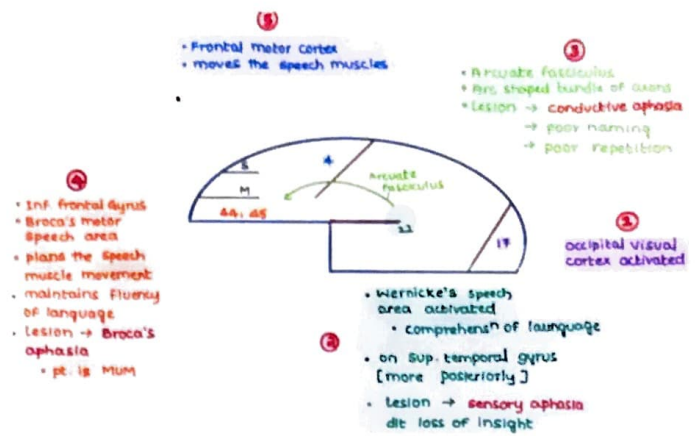 5
• Frontal motor cortex
• moves the speech muscles
3
• Arcuate fasciculus
• Arc shaped bundle of axons
• Lesion → conductive aphasia
→ poor naming
→ poor repetition
4
• Inf. frontal Gyrus
• Broca's motor
speech area
• plans the speech
muscle movement
• maintains fluency
of language
• Lesion → Broca's
aphasia
• pt. is MUM
S
M
44, 45
4
Arcuate
fasciculus
22
17
occipital visual
cortex activated
2
• Wernicke's speech
area activated
• comprehensⁿ of launguage
• on Sup. temporal gyrus
[more posteriorly]
• Lesion → sensory aphasia
d/t loss of insight